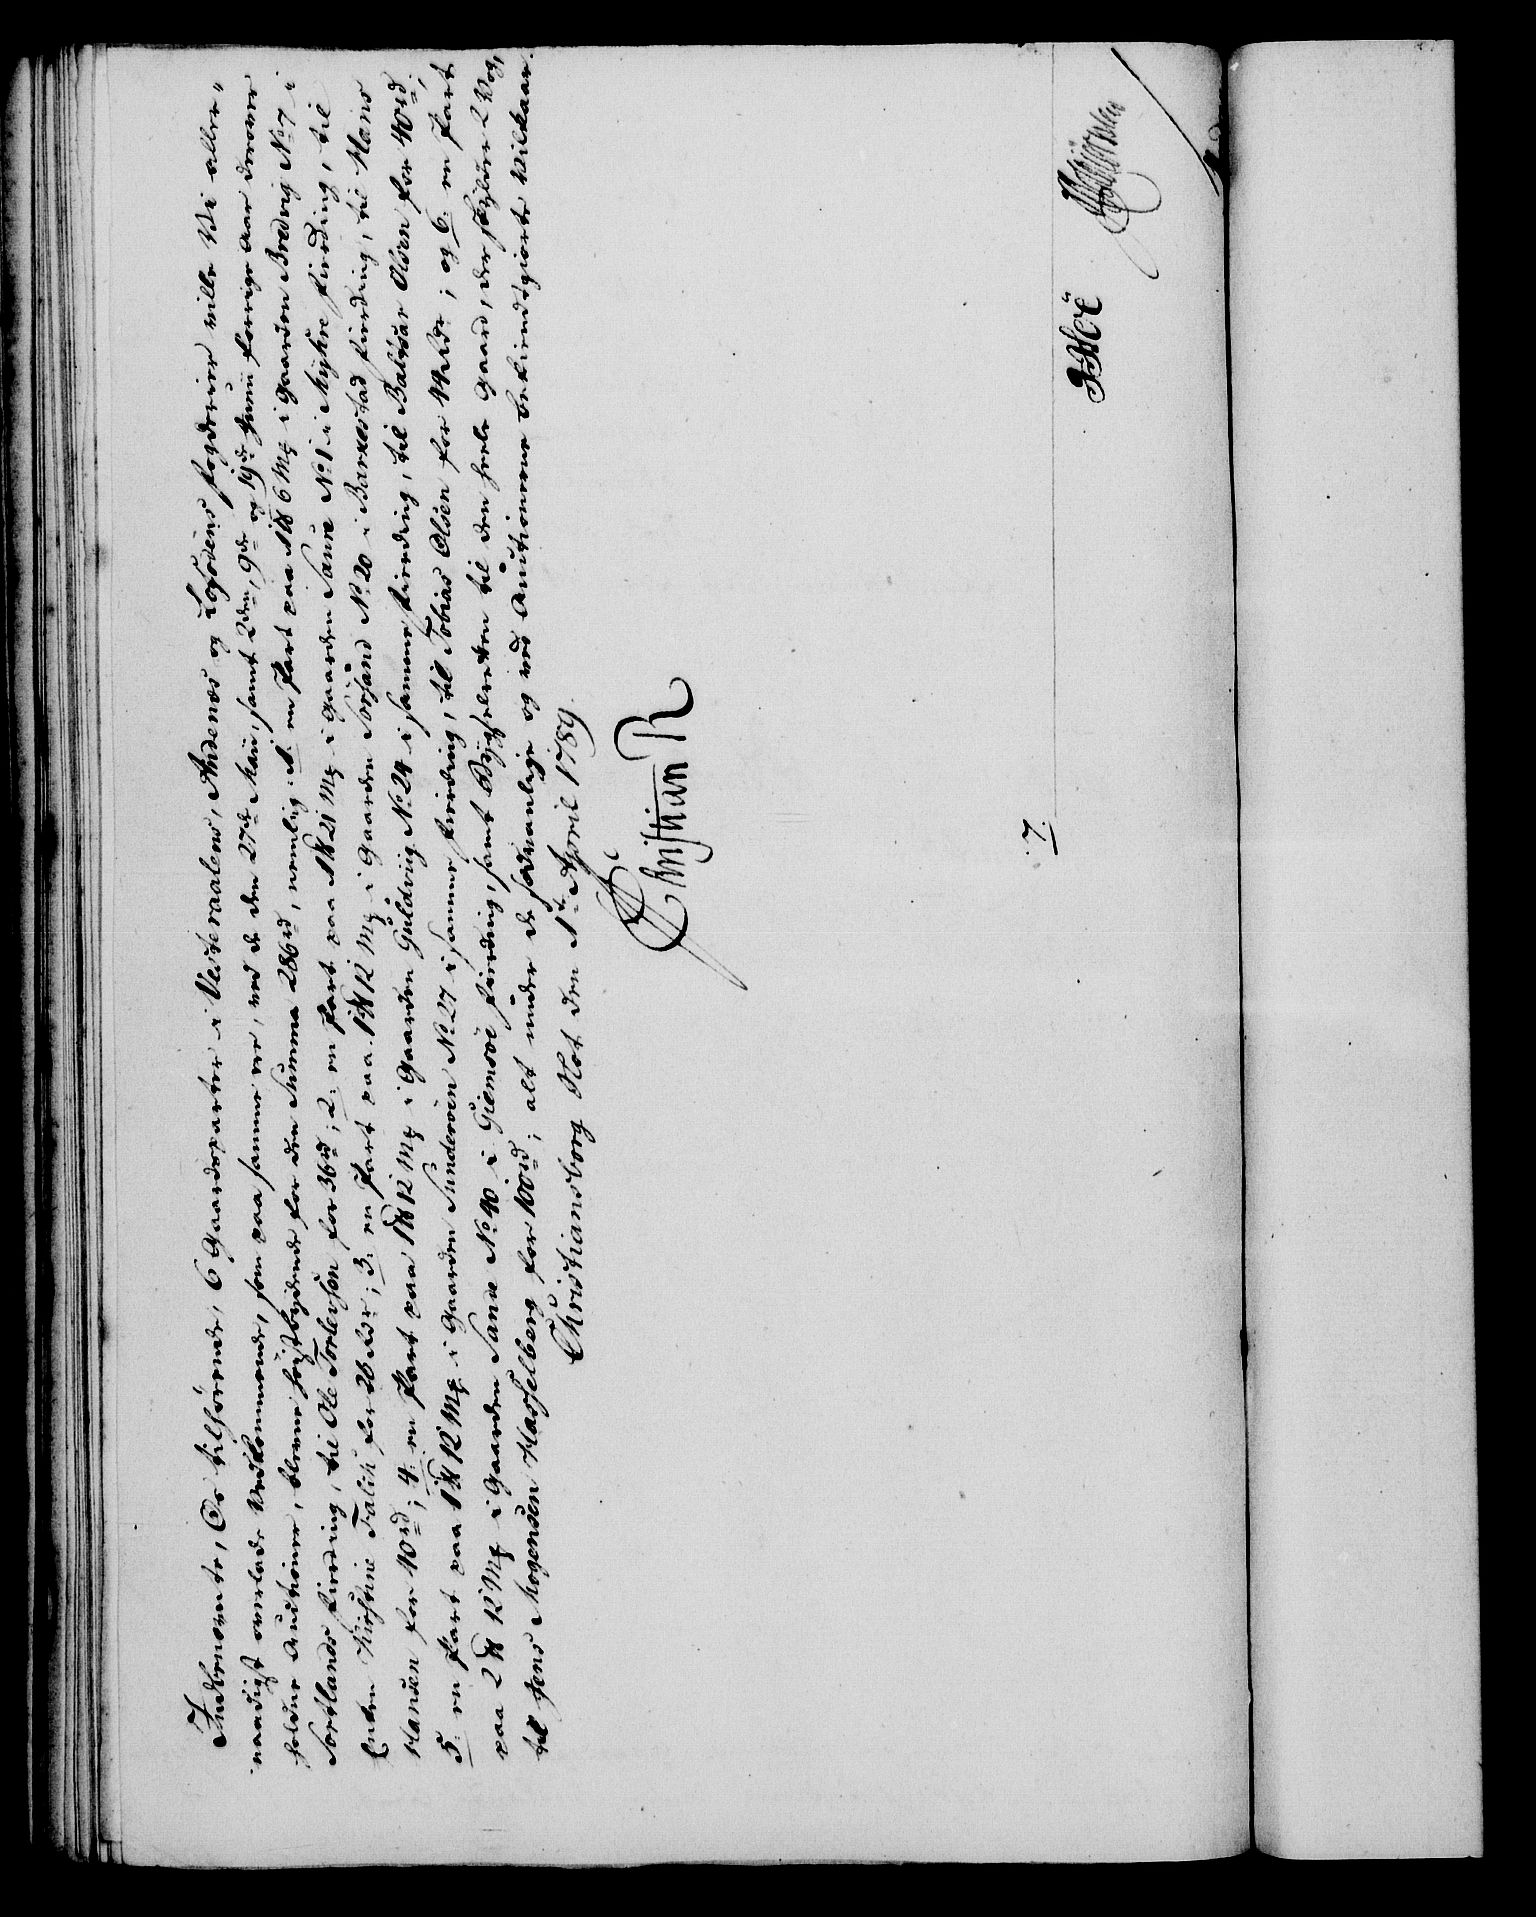 Indbenevnte, Os tilhörende, 6 Gaardeparter i Vesteraalens, Andenæs og Lofodens Fogderier ville Vi aller-
naadigst overlade Vedkommende, som paa samme ere, ved de den 27de Maii, samt 2den, 9de og 19de Junii forrige Aar derover
holdne Auctioner, blevne höystbydende for den Summa 286 rd, nemlig: 1: en Part paa 1 6 Mk i Gaarden Bredvig No 7 i
Sortlands Fierding, til Ole Torlevsen for 36 rd; 2: en Part paa 1 21 Mk i Gaarden Saure No 1 i Myhre Fierding, til
Enken Kirstine Falch for 26 Rdr; 3: en Part paa 1 12 Mk i Gaarden Sörsand No 20 i Barkestad Fierding, til Hans
Hansen for 40 rd; 4: en Part paa 1 12 Mk i Gaarden Guldviig No 24 i samme Fierding, til Baltzar Olsen for 40 rd;
5: en Part paa 1 12 Mk i Gaarden Sunderöen No 27 i samme Fierding, til Tobias Olsen for 44 Rdr; og 6: en Part
paa 2 12 Mk i Gaarden Sande No 40 i Giemsöe Fierding, samt Bygselretten til den heele Gaard, der skylder 2 Vog,
til Jens Mogensen Hasselberg for 100 rd; alt under de sædvanlige og ved Auctionerne bekiendtgiorte Vilkaar.
Christiansborg Slot den 1te April 1789.
Christian R
7.